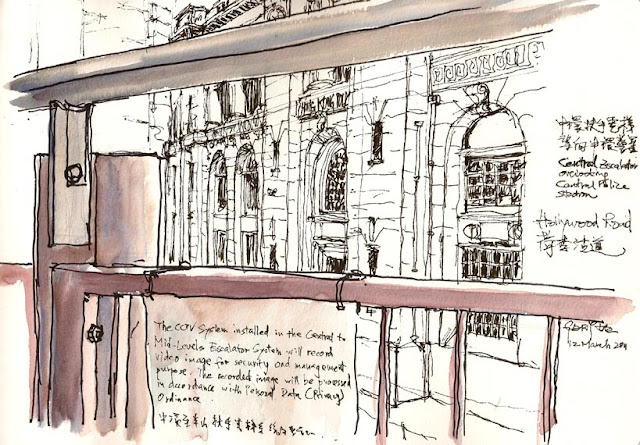 中環扶手電梯
Central Escalator
overlooking
Central Police
Station
Hollywood Road
荷李活道
12 March
The CCTV System installed in the Central to
Mid-Levels Escalator System will record
video image for security and management
purpose. The recorded image will be processed
in accordance with Personal Data (Privacy)
Ordinance.
中環至半山扶手電梯系統